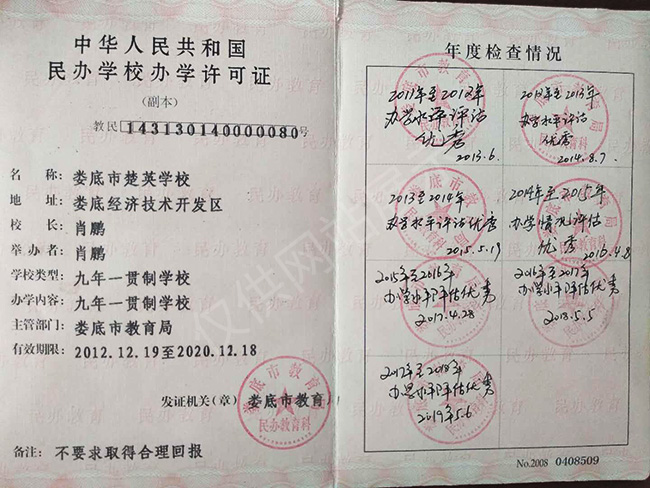 中华人民共和国
民办学校办学许可证
(副本)
教民143130140000080号
名 称：娄底市楚英学校
地 址：娄底经济技术开发区
校 长：肖鹏
举 办 者：肖鹏
学校类型：九年一贯制学校
办学内容：九年一贯制学校
主管部门：娄底市教育局
有效期限：2012.12.19至2020.12.18
发证机关(章) 娄底市教育局
娄底市教育局
民办教育科
备注：不要求取得合理回报
年度检查情况
2011年至2012年
办学水平评估
优秀
2013.6.
2012年至2013年
办学水平评估
优秀
2014.8.7.
2013至2014年
办学水平评估优秀
2015.5.19
2014年至2015年
办学情况评估
优秀
2016.4.8
2015年至2016年
办学水平评估优秀
2017.4.28
2016年至2017年
办学水平评估优秀
2018.5.5
2017年至2018年
办学水平评估优秀
2019.5.6
No.2008 0408509